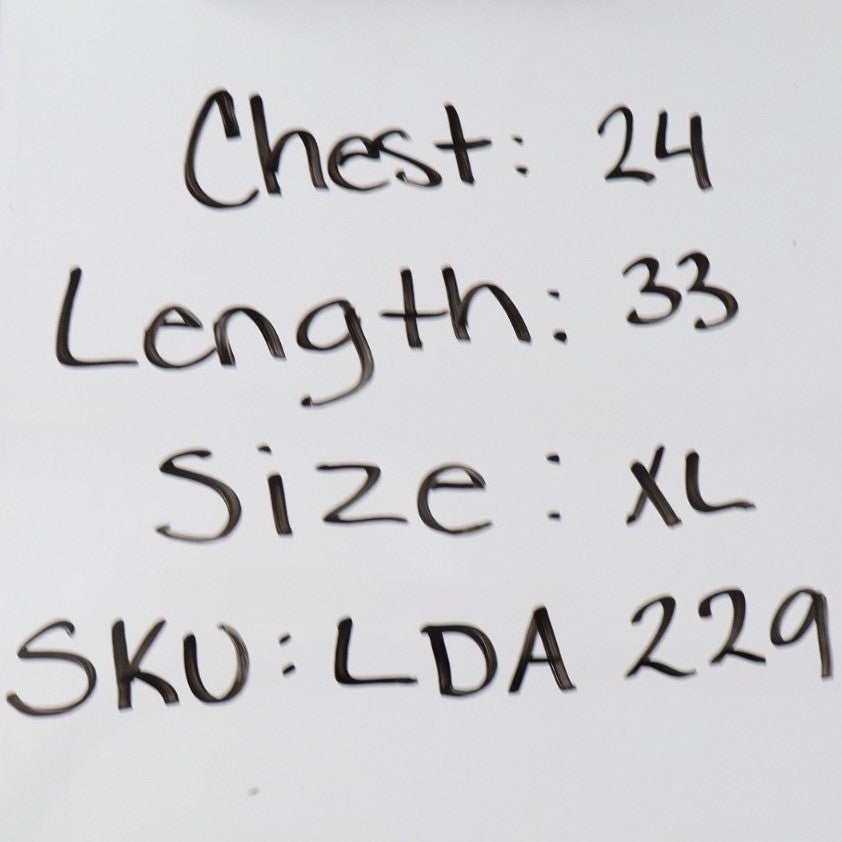 Chest: 24
Length: 33
Size: XL
SKU: LDA 229